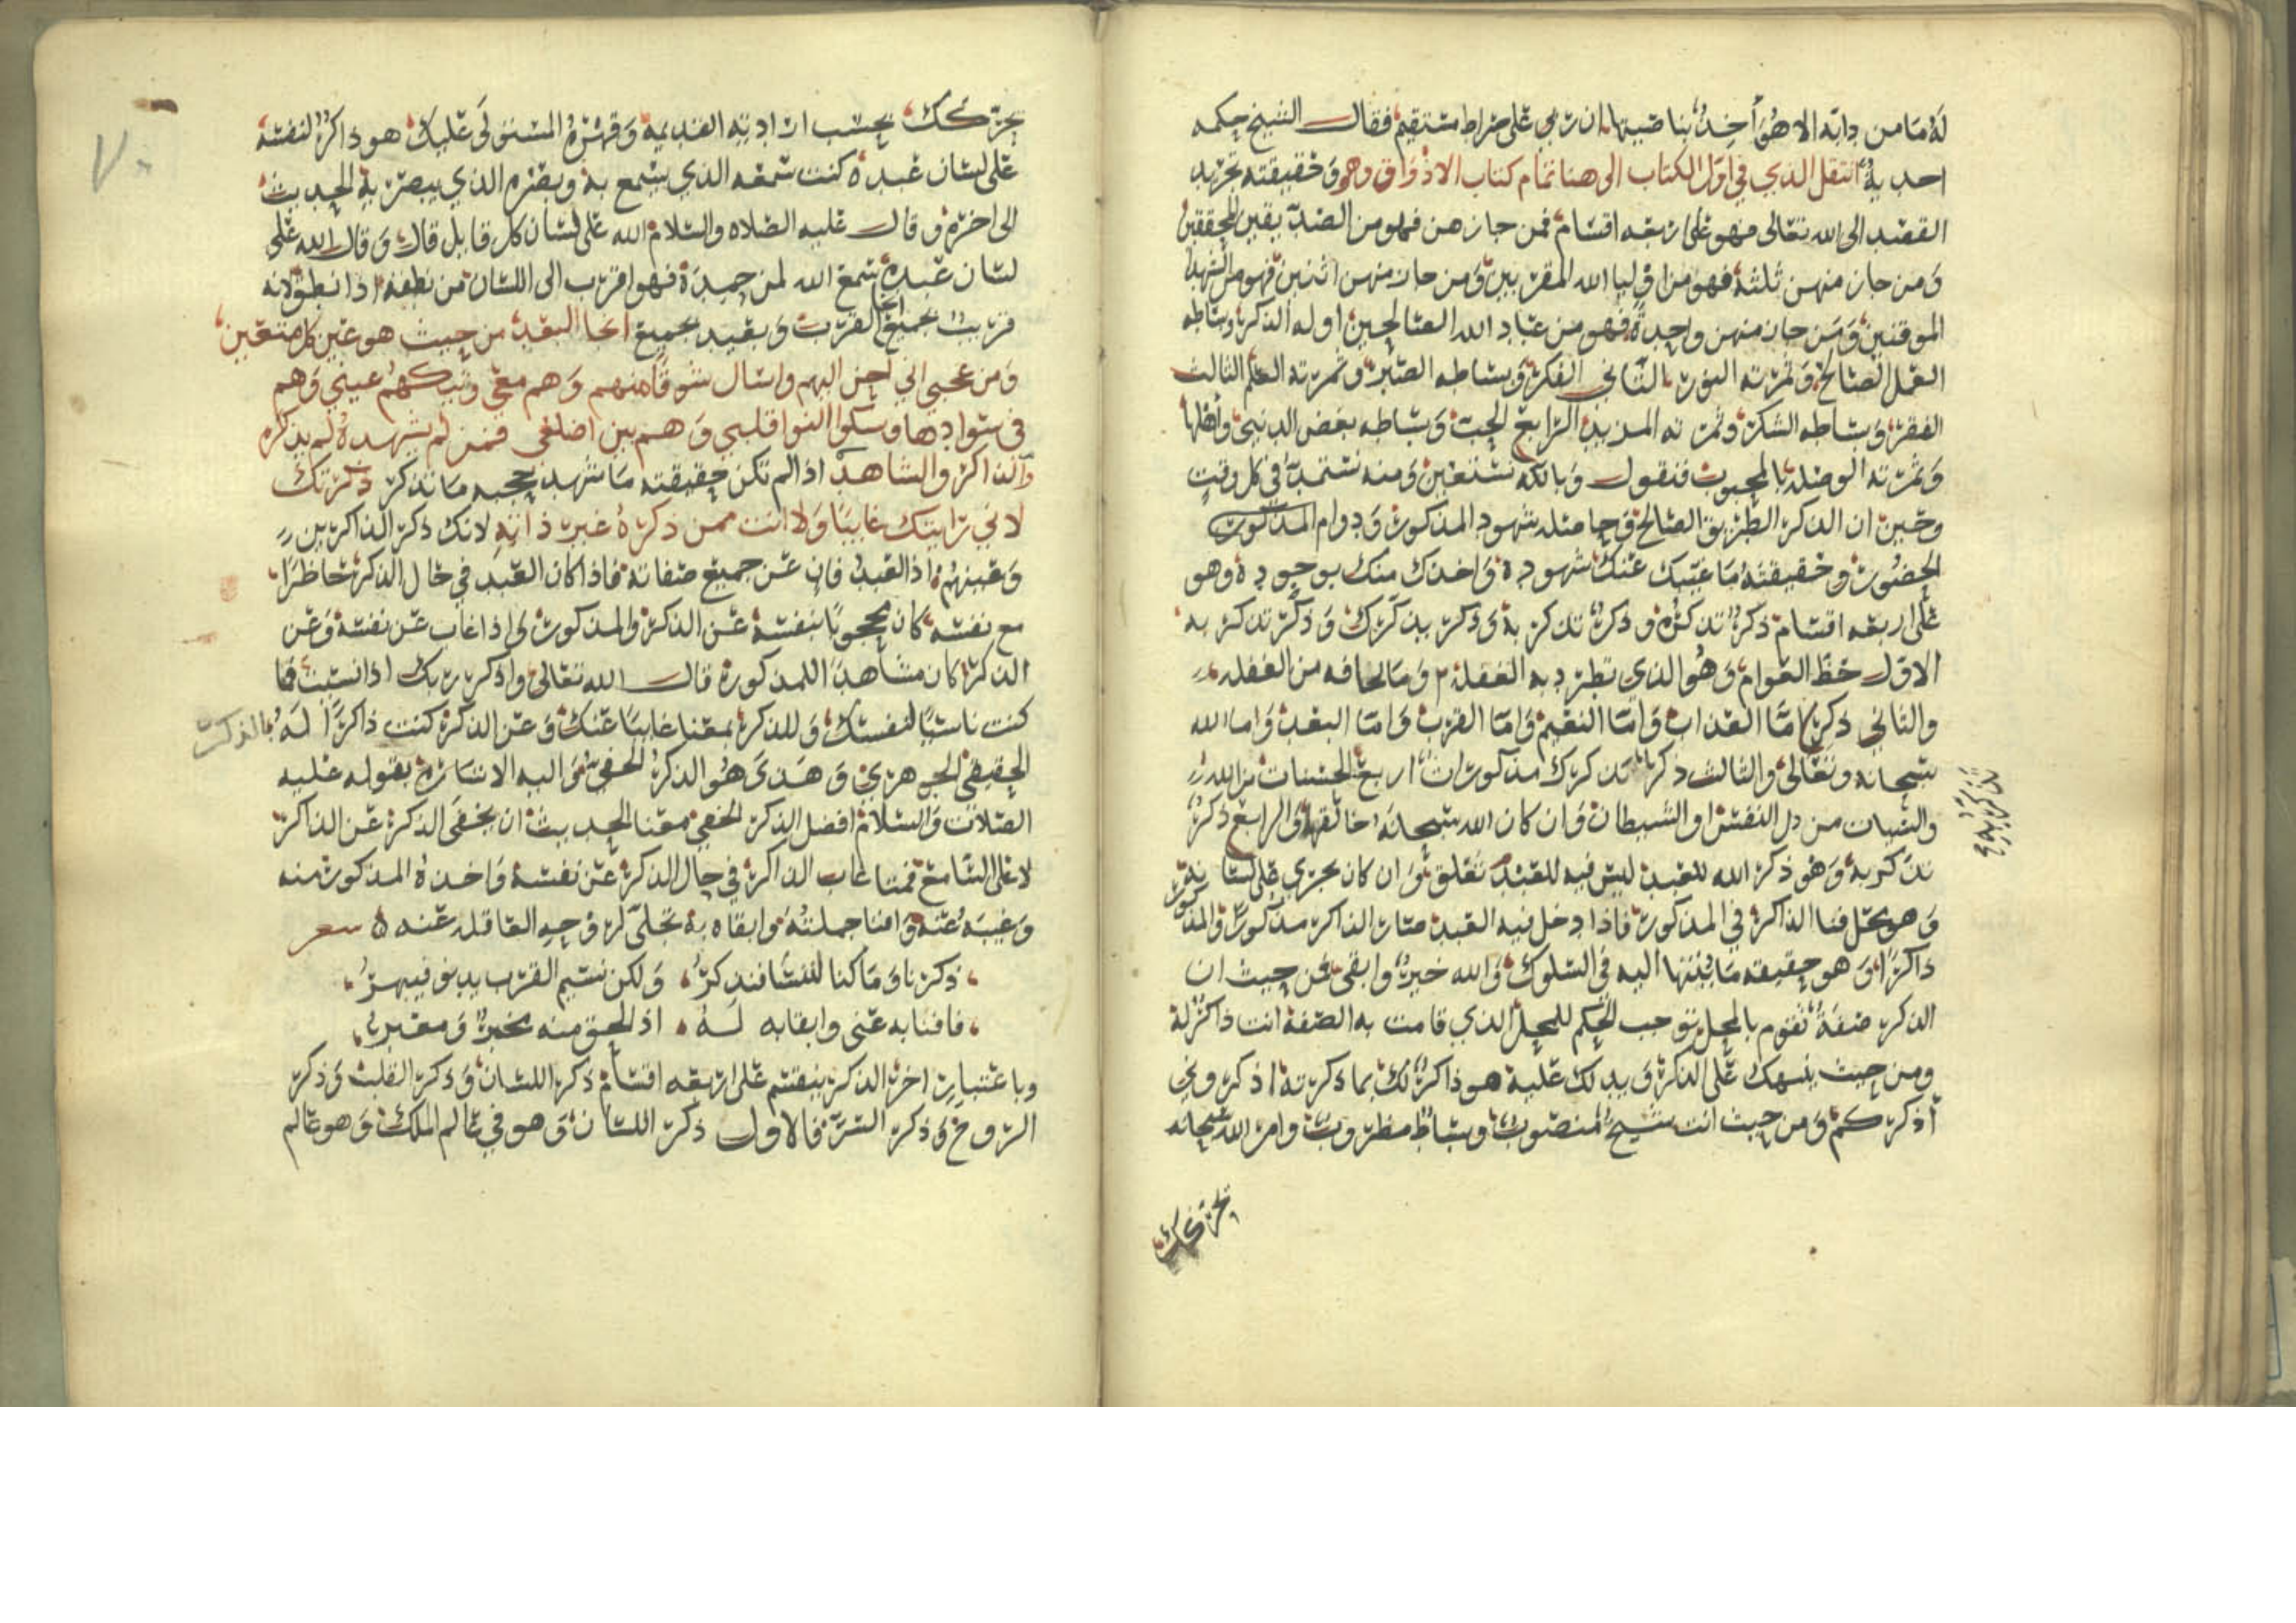 له ما من دابه الا هو آخذ بناصيتها ان ربي على صراط مستقيم فقال الشيخ حكمه
احديه انتقل الذي في اول الكتاب الى هنا تمام كتاب الاذواق وهو وحقيقته تجريد
القصد الى الله تعالى فهو على اربعه اقسام فمن حاز هن فهو من الصديقين المحققين
ومن حاز منهن ثلثة فهو من اوليا الله المقربين ومن حاز منهن اثنين فهو من الشهدا
الموقنين ومن حاز منهن واحدة فهو من عباد الله الصالحين اوله الذكر وبساطه
العمل الصالح وثمرته النور الثاني الفكر وبساطه الصبر وثمرته العلم الثالث
الفقر وبساطه الشكر وثمرته المزيد الرابع الحب وبساطه بغض الدنيى واهلها
وثمرته الوصله بالمحبوب فنقول وبالله نستعين ومنه نستمد في كل وقت
وحين ان الذكر الطريق الصالح وحاصله شهود المذكور ودوام المذكور
الحضور وحقيقته ما غيبك عنك شهوده واخذك منك بوجوده وهو
على اربعه اقسام ذكر تذكره وذكر تذكر به وذكر يذكرك وذكر تذكر به
الاول حظ العوام وهو الذي تطرد به الغفلة وما لحافه من الغفله
والثاني ذكر اما العذاب واما النعيم واما القرب واما البعد واما الله
سبحانه وتعالى والثالث ذكر تذكرك مذكورات اربع الحسنات من الله
والسيات من دل النفس او الشيطان وان كان الله سبحانه خالقها والرابع ذكر
تذكر به وهو ذكر الله للعبد ليس فيه للعبد تعلق وان كان يجري على لسانه
وهو محل فنا الذاكر في المذكور فاذا دخل فيه العبد صار الذاكر مذكورا والمذكور
ذاكرا وهو حقيقه ما ينتها اليه في السلوك والله خير وابقى فمن حيث ان
الذكر صفة تقوم بالمحل توجب الحكم للمحل الذي قامت به الصفة انت ذاكر له
ومن حيث ينبهك على الذكر ويدلك عليه هو ذاكر لك بما ذكرته اذكروني
أذكركم ومن حيث انت شبح منصوب وبساط مطروب وامر الله سبحانه
يحركك
تذكر به
يحركك بحسب ارادته القديمه وقهره المستولى عليك هو ذاكر لنفسه
على لسان عبده كنت سمعه الذي يسمع به وبصره الذي يبصر به الحديث
الى اخره وقال عليه الصلاه والسلام الله على لسان كل قايل قال وقال الله على
لسان عبده سمع الله لمن حمده فهو اقرب الى اللسان من نطقه اذا نطق لانه
قريب بجميع انحا القرب وبعيد بجميع انحا البعد من حيث هو عين كل متعين
ومن عجبي اني احن اليهم واسال شوقا منهم وهم معي وتبكهم عيني وهم
في سوادها وشكوا النوا قلبي وهم بين اضلعي فمن لم يشهده لم يذكره
والذاكر والشاهد اذا لم تكن حقيقته ما شهد حجبه ما تذكر ذكرتك
لا ني رايتك غايبا ولا انت ممن ذكره غير ذاته لانك ذكر الذاكرين
وعينهم اذ العبد فان عن جميع صفاته فاذا كان العبد في حال الذكر حاظرا
مع نفسه كان محجوبا بنفسه عن الذكر والمذكور واذا غاب عن نفسه وعن
الذكر كان مشاهدا للمذكورة قال الله تعالى واذكر ربك اذا نسيت فما
كنت ناسيا لنفسك وللذكر بمعنا غايبا عنك وعن الذكر كنت ذاكرا له بالذكر
الحقيقي الجوهري وهذى هو الذكر الخفي واليه الاشاره بقوله عليه
الصلات والسلام افضل الذكر الخفي معنا الحديث ان يخفى الذكر عن الذاكر
لا على السامع فمتا غاب الذاكر في حال الذكر عن نفسه واخذه المذكور منه
وغيبه عنه وافنا جملته وابقاه به تجلى له وجه العاقله عنه شعر
ذكرنا وما كنا لننسا فنذكر ولكن نسيم القرب يدنو فيبهر
فافنا به عني وابقا به له اذ الحق منه مخبر ومعبر
وباعتبار اخر الذكر ينقسم على اربعه اقسام ذكر اللسان وذكر القلب وذكر
الروح وذكر السر فالاول ذكر اللسان وهو في عالم الملك وهو عالم
٧٠